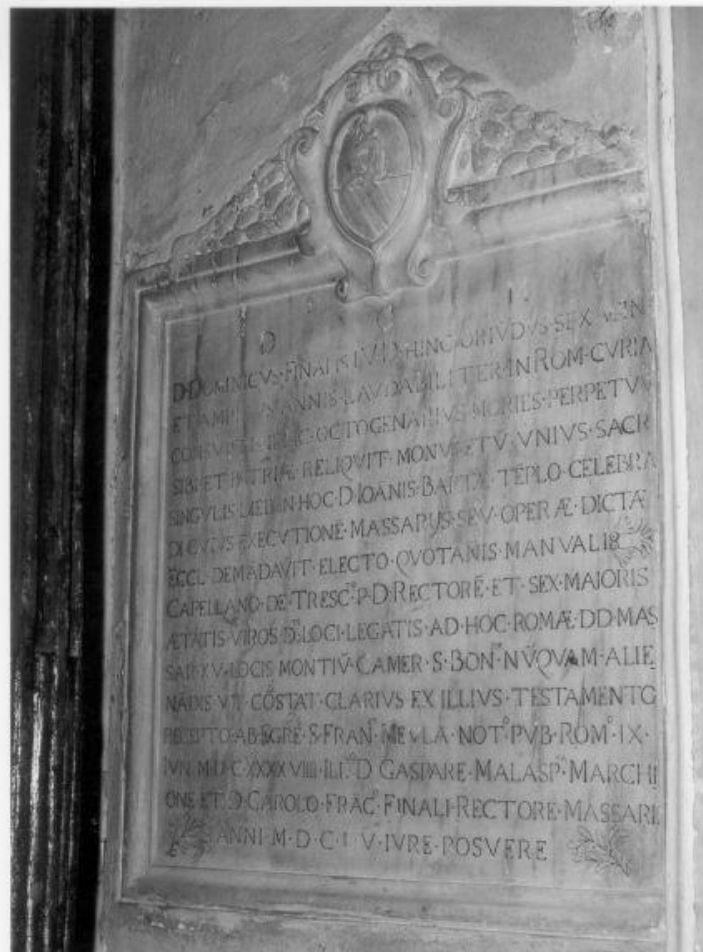 D · O ·
D·DOMINICVS·FINALIS I·V·D·HINC·ORIVDVS·SEX
ET ANNIS·LAVDABILITER·IN ROM·CVRIA
OCTOGENARIVS·MORIES·PERPETVV
SIBI·ET PATRIÆ RELIQVIT·MONVMETV·VNIVS·SACR
SINGVLIS·DIEB·IN·HOC·D·IOANIS·BAPTÆ TEPLO·CELEBRA
DI·CVIVS·EXECVTIONE·MASSARIIS·SEV·OPERÆ·DICTÆ
ECCL·DEMADAVIT·ELECTO·QVOTANIS·MANVALIB
CAPELLANO·DE·TRESC·P·D·RECTORĒ·ET·SEX·MAIORIS
ÆTATIS·VIROS·D·LOCI·LEGATIS·AD·HOC·ROMÆ·DD·MAS
SAR·XV·LOCIS·MONTIŪ·CAMER·S·BON·NŪQVAM·ALIE
NĀDIS·VT·CŌSTAT·CLARIVS·EX ILLIVS·TESTAMENTO
RECEPTO·AB·EGRE·S·FRAN· NOT·PVB·ROM·IX·
IVN·M·D·C·XXXXVIIII·ILL·D GASPARE·MALASP·MARCHI
ONE·ET·D·CAROLO·FRAC·FINALI·RECTORE·MASSARII
ANNI·M·D·C·L·V·IVRE·POSVERE